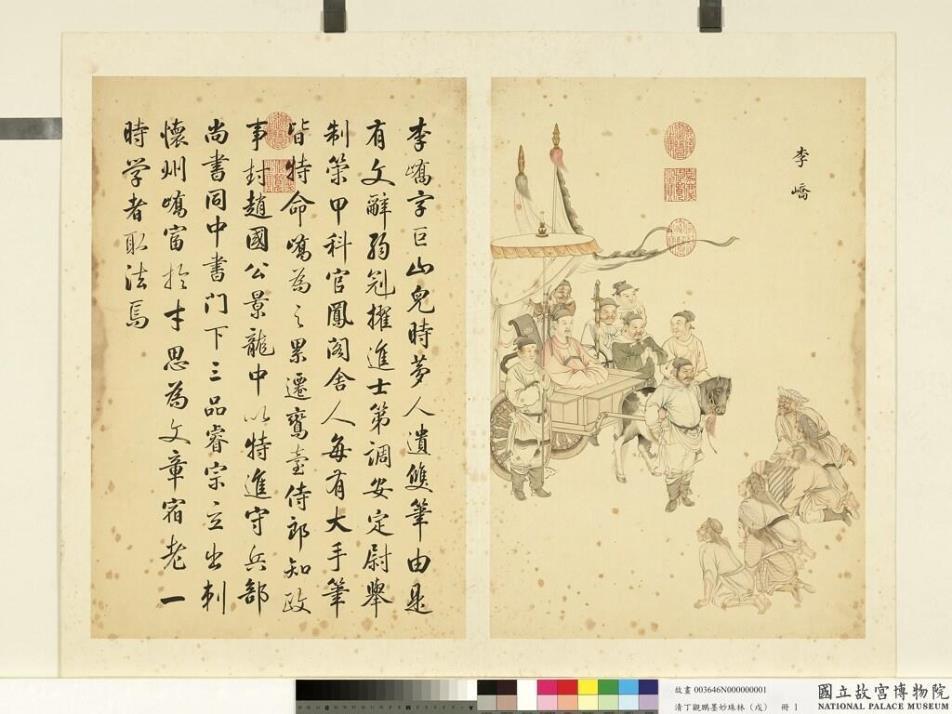 李嶠
李嶠字巨山兒時夢人遺雙筆由是
有文辭弱冠擢進士第調安定尉舉
制策甲科官鳳閣舍人每有大手筆
皆特命嶠為之累遷鸞臺侍郎知政
事封趙國公景龍中以特進守兵部
尚書同中書门下三品睿宗立出刺
懷州嶠富於才思為文章宿老一
時学者取法焉
故畫 003646N000000001
清丁觀鵬墨妙珠林（戌） 冊 1
國立故宮博物院
NATIONAL PALACE MUSEUM